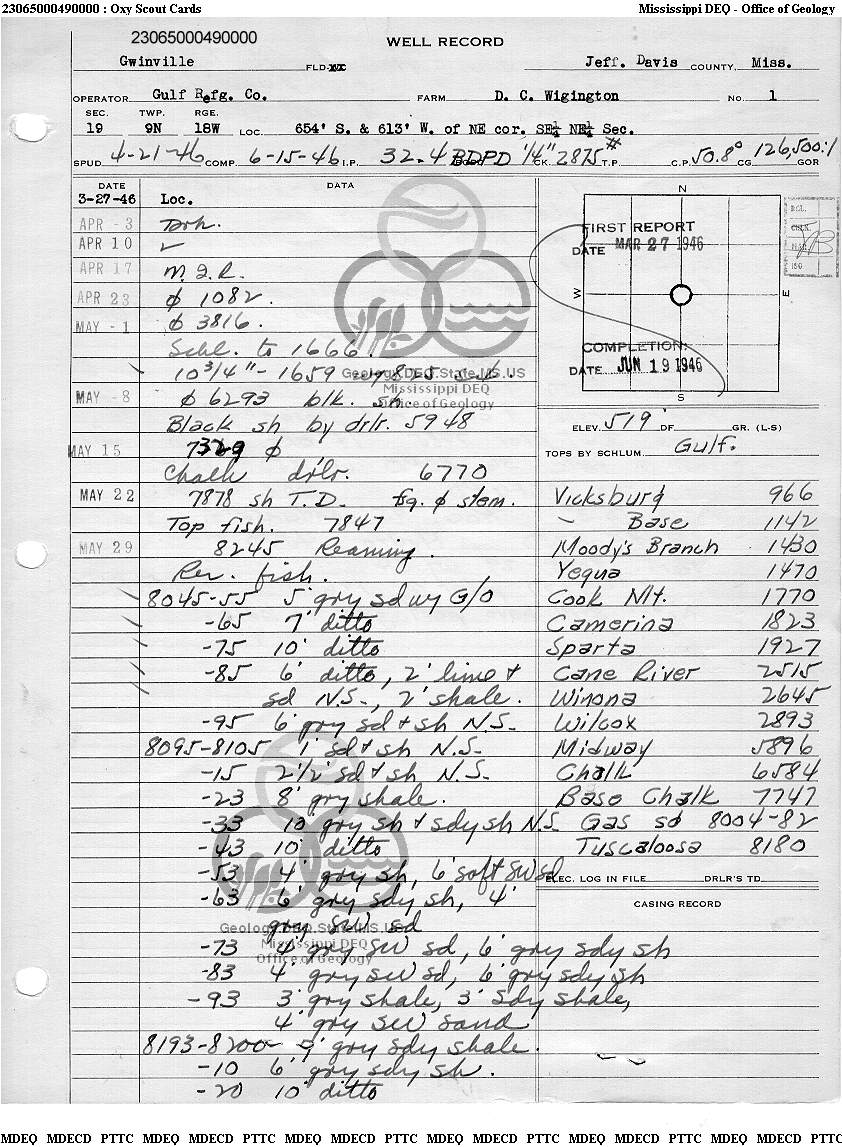 23065000490000 : Oxy Scout Cards Mississippi DEQ - Office of Geology
23065000490000
WELL RECORD
Gwinville FLD. Jeff. Davis COUNTY, Miss.
OPERATOR Gulf Refg. Co. FARM D. C. Wigington NO. 1
SEC. TWP. RGE.
19 9N 18W LOC. 654' S. & 613' W. of NE cor. SE¼ NE¼ Sec.
SPUD 4-21-46 COMP. 6-15-46 I.P. 32.4 BDPD 1/4" CK. 2875# T.P. C.P. 50.8° CG 126,500:1 GOR
DATE DATA
3-27-46 Loc.
APR - 3 Drk.
APR 10 ✓
APR 17 M.I.R.
APR 23 ϕ 1082.
MAY - 1 ϕ 3816.
Schl. to 1666.
10 3/4" - 1659
MAY - 8 ϕ 6293 blk. sh.
Black sh by drlr. 5948
MAY 15 7329 ϕ
Chalk drlr. 6770
MAY 22 7878 sh T.D. fsg. ϕ stem.
Top fish. 7847
MAY 29 8245 Reaming.
Rec. fish.
8045-55 5' gry sd w/ G/O
-65 7' ditto
-75 10' ditto
-85 6' ditto, 2' lime &
sd N.S., 2' shale.
-95 6' gry sd & sh N.S.
8095-8105 1' sd & sh N.S.
-15 2 1/2' sd & sh N.S.
-23 8' gry shale.
-33 10' gry sh & sdy sh N.S.
-43 10' ditto
-53 4' gry sh, 6' soft SW sd
-63 6' gry sdy sh, 4'
gry SW sd
-73 4' gry SW sd, 6' gry sdy sh
-83 4' gry SW sd, 6' gry sdy sh
-93 3' gry shale, 3' sdy shale,
4' gry SW sand
8193-8200 gry sdy shale.
-10 6' gry sdy sh.
-20 10' ditto
N
FIRST REPORT
DATE MAR 27 1946
W E
COMPLETION:
DATE JUN 19 1946
S
ELEV. 519' DF GR. (L-S)
TOPS BY SCHLUM. Gulf.
Vicksburg 966
— Base 1142
Moody's Branch 1430
Yegua 1470
Cook Mt. 1770
Camerina 1823
Sparta 1927
Cane River 2515
Winona 2645
Wilcox 2893
Midway 5896
Chalk 6584
Base Chalk 7747
Gas sd 8004-82
Tuscaloosa 8180
ELEC. LOG IN FILE DRLR'S TD
CASING RECORD
Geology.DEQ.State.MS.US
Mississippi DEQ
Office of Geology
Geology.DEQ.State.MS.US
Mississippi DEQ
Office of Geology
MDEQ MDECD PTTC MDEQ MDECD PTTC MDEQ MDECD PTTC MDEQ MDECD PTTC MDEQ MDECD PTTC MDEQ MDECD PTTC